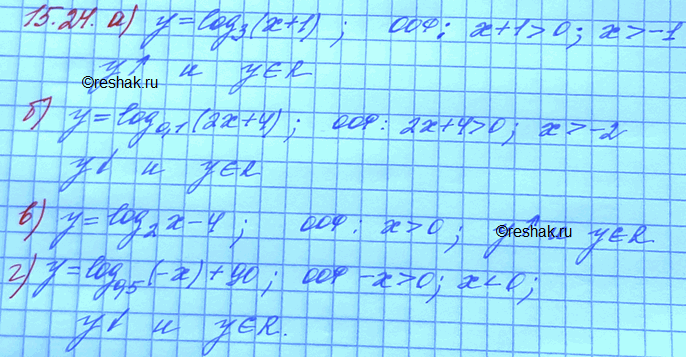 15.24. а) y = log₃(x+1); ООФ: x+1>0; x>-1
y↑ и y∈R
©reshak.ru
б) y = log₀,₁(2x+4); ООФ: 2x+4>0; x>-2
y↓ и y∈R
в) y = log₂ x-4; ООФ: x>0; y↑ и y∈R
©reshak.ru
г) y = log₀,₅(-x)+40; ООФ -x>0; x<0;
y↑ и y∈R.